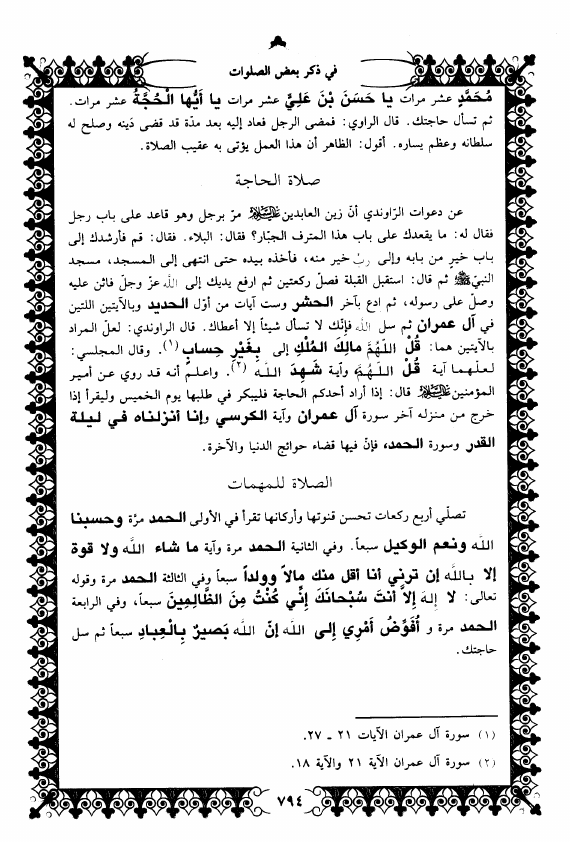 في ذكر بعض الصلوات
مُحَمَّدٍ عشر مرات يا حَسَنَ بْنَ عَلِيٍّ عشر مرات يا أَيُّها الْحُجَّةُ عشر مرات.
ثم تسأل حاجتك. قال الراوي: فمضى الرجل فعاد إليه بعد مدّة قد قضى دَينه وصلح له
سلطانه وعظم يساره. أقول: الظاهر أن هذا العمل يؤتى به عقيب الصلاة.
صلاة الحاجة
عن دعوات الرّاوندي أنّ زين العابدين عليه السلام مرّ برجل وهو قاعد على باب رجل
فقال له: ما يقعدك على باب هذا المترف الجبّار؟ فقال: البلاء. فقال: قم فأرشدك إلى
باب خيرٍ من بابه وإلى ربّ خير منه، فأخذه بيده حتى انتهى إلى المسجد، مسجد
النبيّ ﷺ ثم قال: استقبل القبلة فصلّ ركعتين ثم ارفع يديك إلى الله عزّ وجلّ فاثن عليه
وصلّ على رسوله، ثم ادع بآخر الحشر وست آيات من أوّل الحديد وبالآيتين اللتين
في آل عمران ثم سل الله فإنّك لا تسأل شيئاً إلا أعطاك. قال الراوندي: لعلّ المراد
بالآيتين هما: قُلْ اللهُمَّ مالِكَ المُلْكِ إلى بِغَيْرِ حِسابٍ(١). وقال المجلسي:
لعلّهما آية قُلْ اللهُمَّ وآية شَهِدَ الله(٢). واعلم أنه قد روي عن أمير
المؤمنين عليه السلام قال: إذا أراد أحدكم الحاجة فليبكر في طلبها يوم الخميس وليقرأ إذا
خرج من منزله آخر سورة آل عمران وآية الكرسي وإنا أنزلناه في ليلة
القدر وسورة الحمد، فإنّ فيها قضاء حوائج الدنيا والآخرة.
الصلاة للمهمات
تصلّي أربع ركعات تحسن قنوتها وأركانها تقرأ في الأولى الحمد مرّة وحسبنا
الله ونعم الوكيل سبعاً. وفي الثانية الحمد مرة وآية ما شاء الله ولا قوة
إلا بالله إن ترني أنا أقل منك مالاً وولداً سبعاً وفي الثالثة الحمد مرة وقوله
تعالى: لا إله إلاّ أنتَ سُبْحانَكَ إنِّي كُنْتُ مِنَ الظّالِمِينَ سبعاً، وفي الرابعة
الحمد مرة و أُفَوِّضُ أَمْرِي إلى الله إنّ الله بَصيرٌ بِالْعِبادِ سبعاً ثم سل
حاجتك.
(١) سورة آل عمران الآيات ٢١ ـ ٢٧.
(٢) سورة آل عمران الآية ٢١ والآية ١٨.
٧٩٤